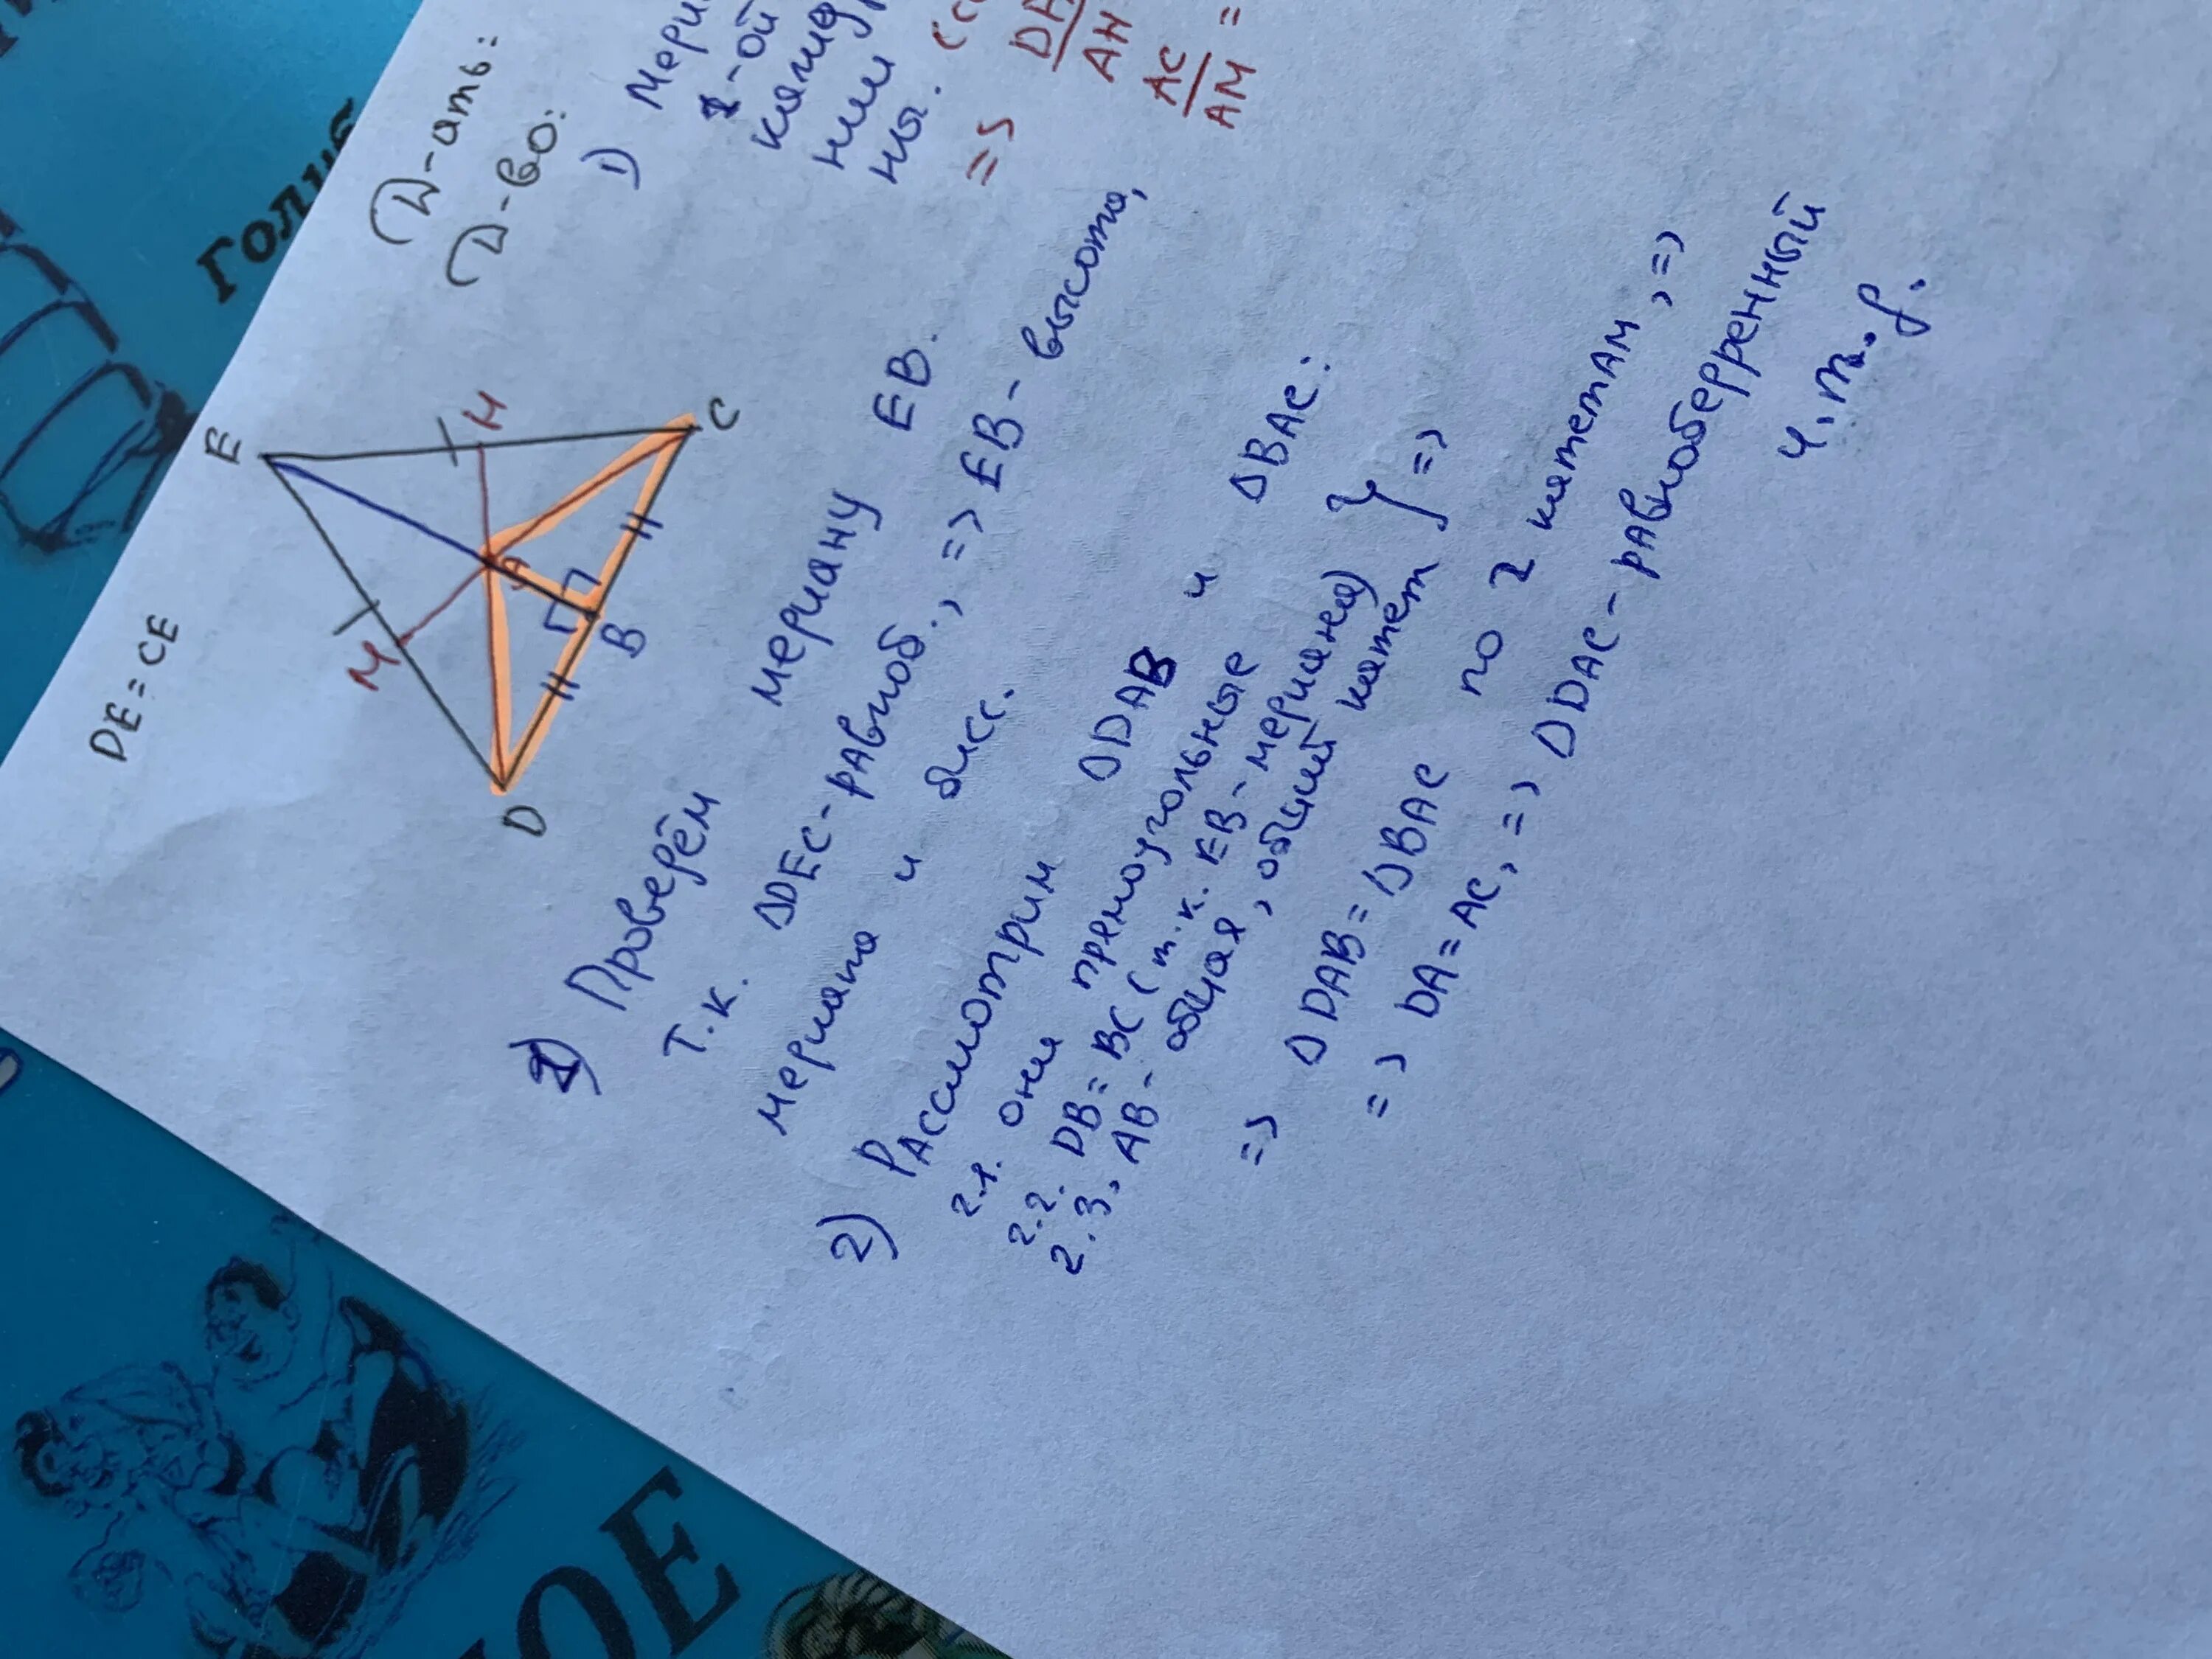 DE = CE
E
M
H
A
D
B
C
Д-ать:
Д-во:
1)
-ой
ни
ны.
=>
AH
AC
AM
=
1) Проведём медиану EB.
Т.к. △DEC-равноб., => EB - высота,
медиата и бисс.
2) Рассмотрим △DAB и △BAC:
2.1. они премоугольные
2.2. DB = BC (т.к. EB - медиана)
2.3, AB - общая, общий катет } =>
=> △DAB = △BAC по 2 катетам, =>
=> DA = AC, => △DAC - равнобедренный
ч.т.д.
ОЕ